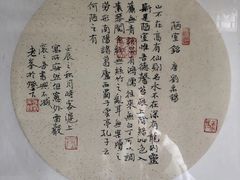 陋室銘 唐劉禹錫
山不在高有仙則名水不在深有龍則靈
斯是陋室惟吾德馨苔痕上階綠草色入
簾青談笑有鴻儒往來無白丁可以調
素琴閱金經無絲竹之亂耳無案牘之
勞形南陽諸葛廬西蜀子雲亭孔子云
何陋之有
壬辰之秋月時客